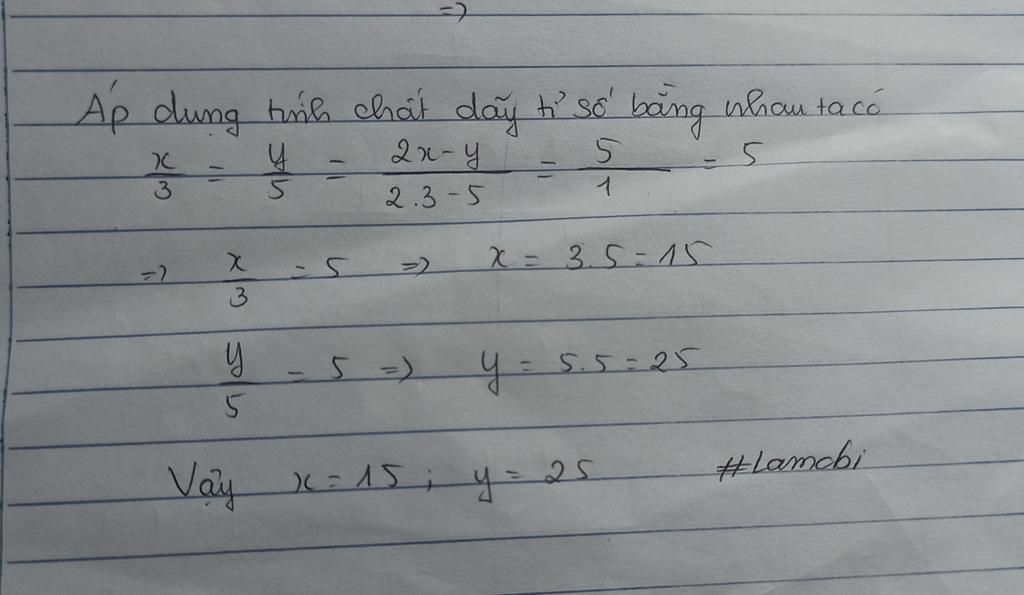 =>
Áp dụng tính chất dãy tỉ số bằng nhau ta có
x/3 = y/5 = 2x-y/2.3-5 = 5/1 = 5
=> x/3 = 5 => x = 3.5 = 15
y/5 = 5 => y = 5.5 = 25
Vậy x = 15 ; y = 25 #Lamchi